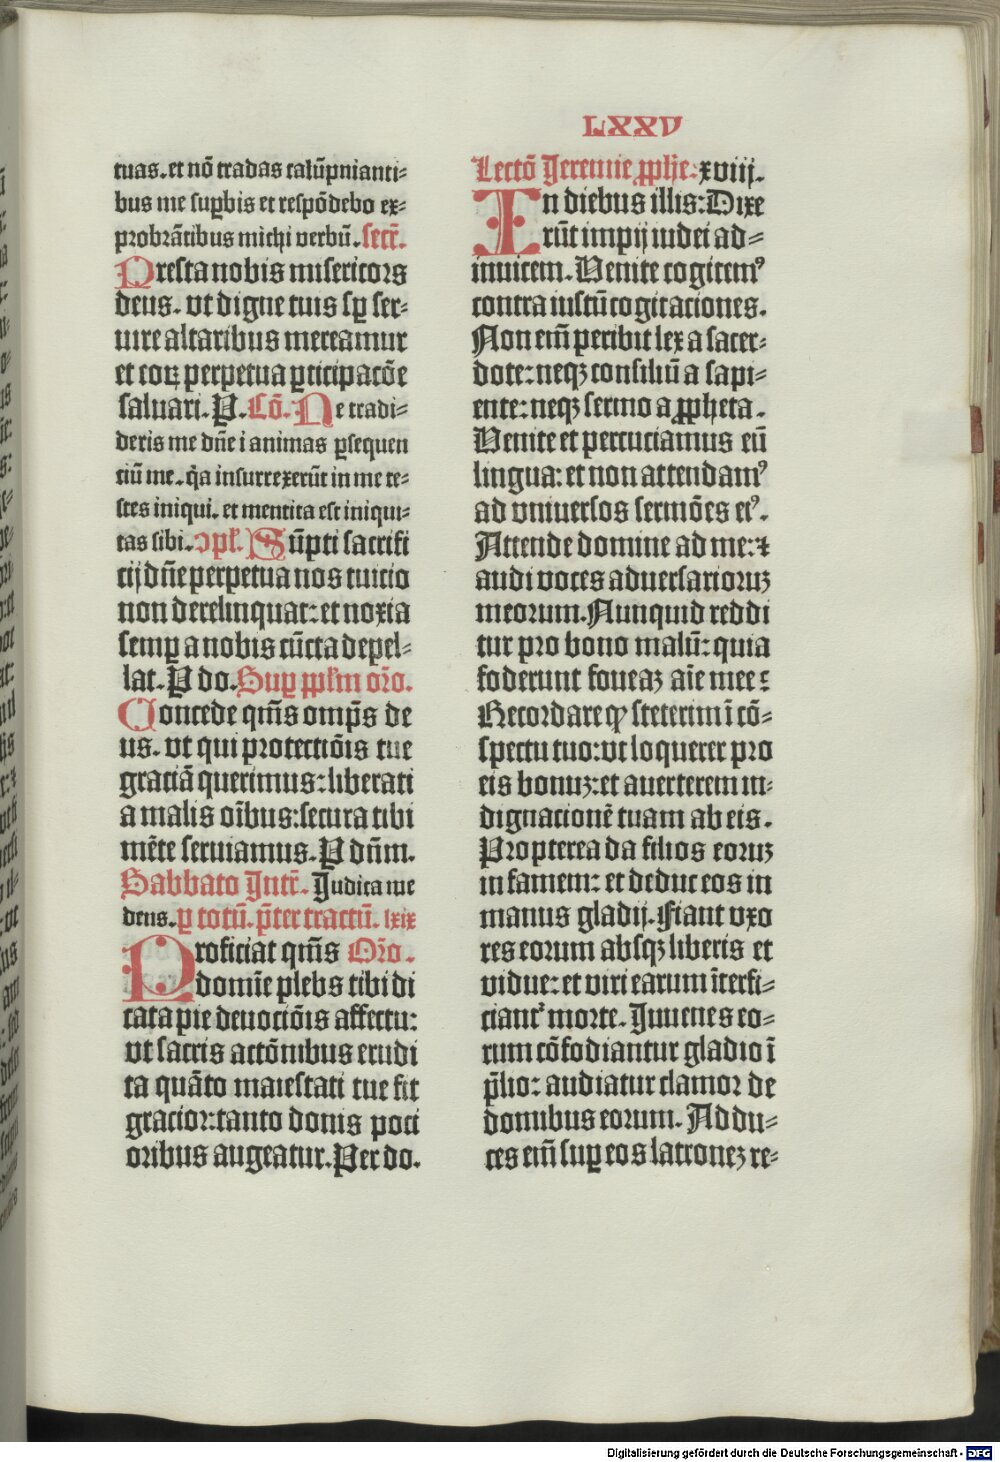 LXXV
tuas. et nō tradas calūpnianti⸗
bus me suꝑbis et respōdebo ex⸗
probrātibus michi verbū. secr̄.
Presta nobis misericors
deus. vt digne tuis sꝑ ser⸗
uire altaribus mereamur
et eoꝝ perpetua ꝑticipacōe
saluari. P. Cō. Ne tradi⸗
deris me dn̄e i animas ꝑsequen
ciū me. q̇a insurrexerūt in me te⸗
stes iniqui. et mentita est iniqui⸗
tas sibi. ↄpl̄. Sūpti sacrifi
cij dn̄e perpetua nos tuicio
non derelinquat: et noxia
semꝑ a nobis cūcta depel⸗
lat. P do. Suꝑ ppl̄m or̄o.
Concede qm̄s omp̄s de
us. vt qui protectiōis tue
graciā querimus: liberati
a malis oībus: secura tibi
mēte seruiamus. P dn̄m.
Sabbato Intr̄. Judica me
deus. ꝑ totū. p̄ter tractū. lxix
Proficiat qm̄s Or̄o.
domīe plebs tibi di
cata pie deuociōis affectu:
vt sacris actōnibus erudi
ta quāto maiestati tue fit
gracior: tanto donis poci
oribus augeatur. Per do.
Lectō Jeremie ꝓph̄e: xviij.
In diebus illis: Dixe
rūt impij iudei ad⸗
inuicem. Venite cogitemꝰ
contra iustū cogitaciones.
Non em̄ peribit lex a sacer⸗
dote: neqꝫ consiliū a sapi⸗
ente: neqꝫ sermo a ꝓpheta.
Venite et percuciamus eū
lingua: et non attendamꝰ
ad vniuersos sermōes eiꝰ.
Attende domine ad me: ⁊
audi voces aduersarioruꝫ
meorum. Nunquid reddi
tur pro bono malū: quia
foderunt foueaꝫ aīe mee:
Recordare ꝙ steterim ī cō⸗
spectu tuo: vt loquerer pro
eis bonuꝫ: et auerterem in⸗
dignacionē tuam ab eis.
Propterea da filios eoruꝫ
in famem: et deduc eos in
manus gladij. Fiant vxo
res eorum absqꝫ liberis et
vidue: et viri earum īterfi⸗
ciant᷑ morte. Juuenes eo⸗
rum cōfodiantur gladio ī
p̄lio: audiatur clamor de
domibus eorum. Addu⸗
ces em̄ suꝑ eos latroneꝫ re⸗
Digitalisierung gefördert durch die Deutsche Forschungsgemeinschaft - DFG